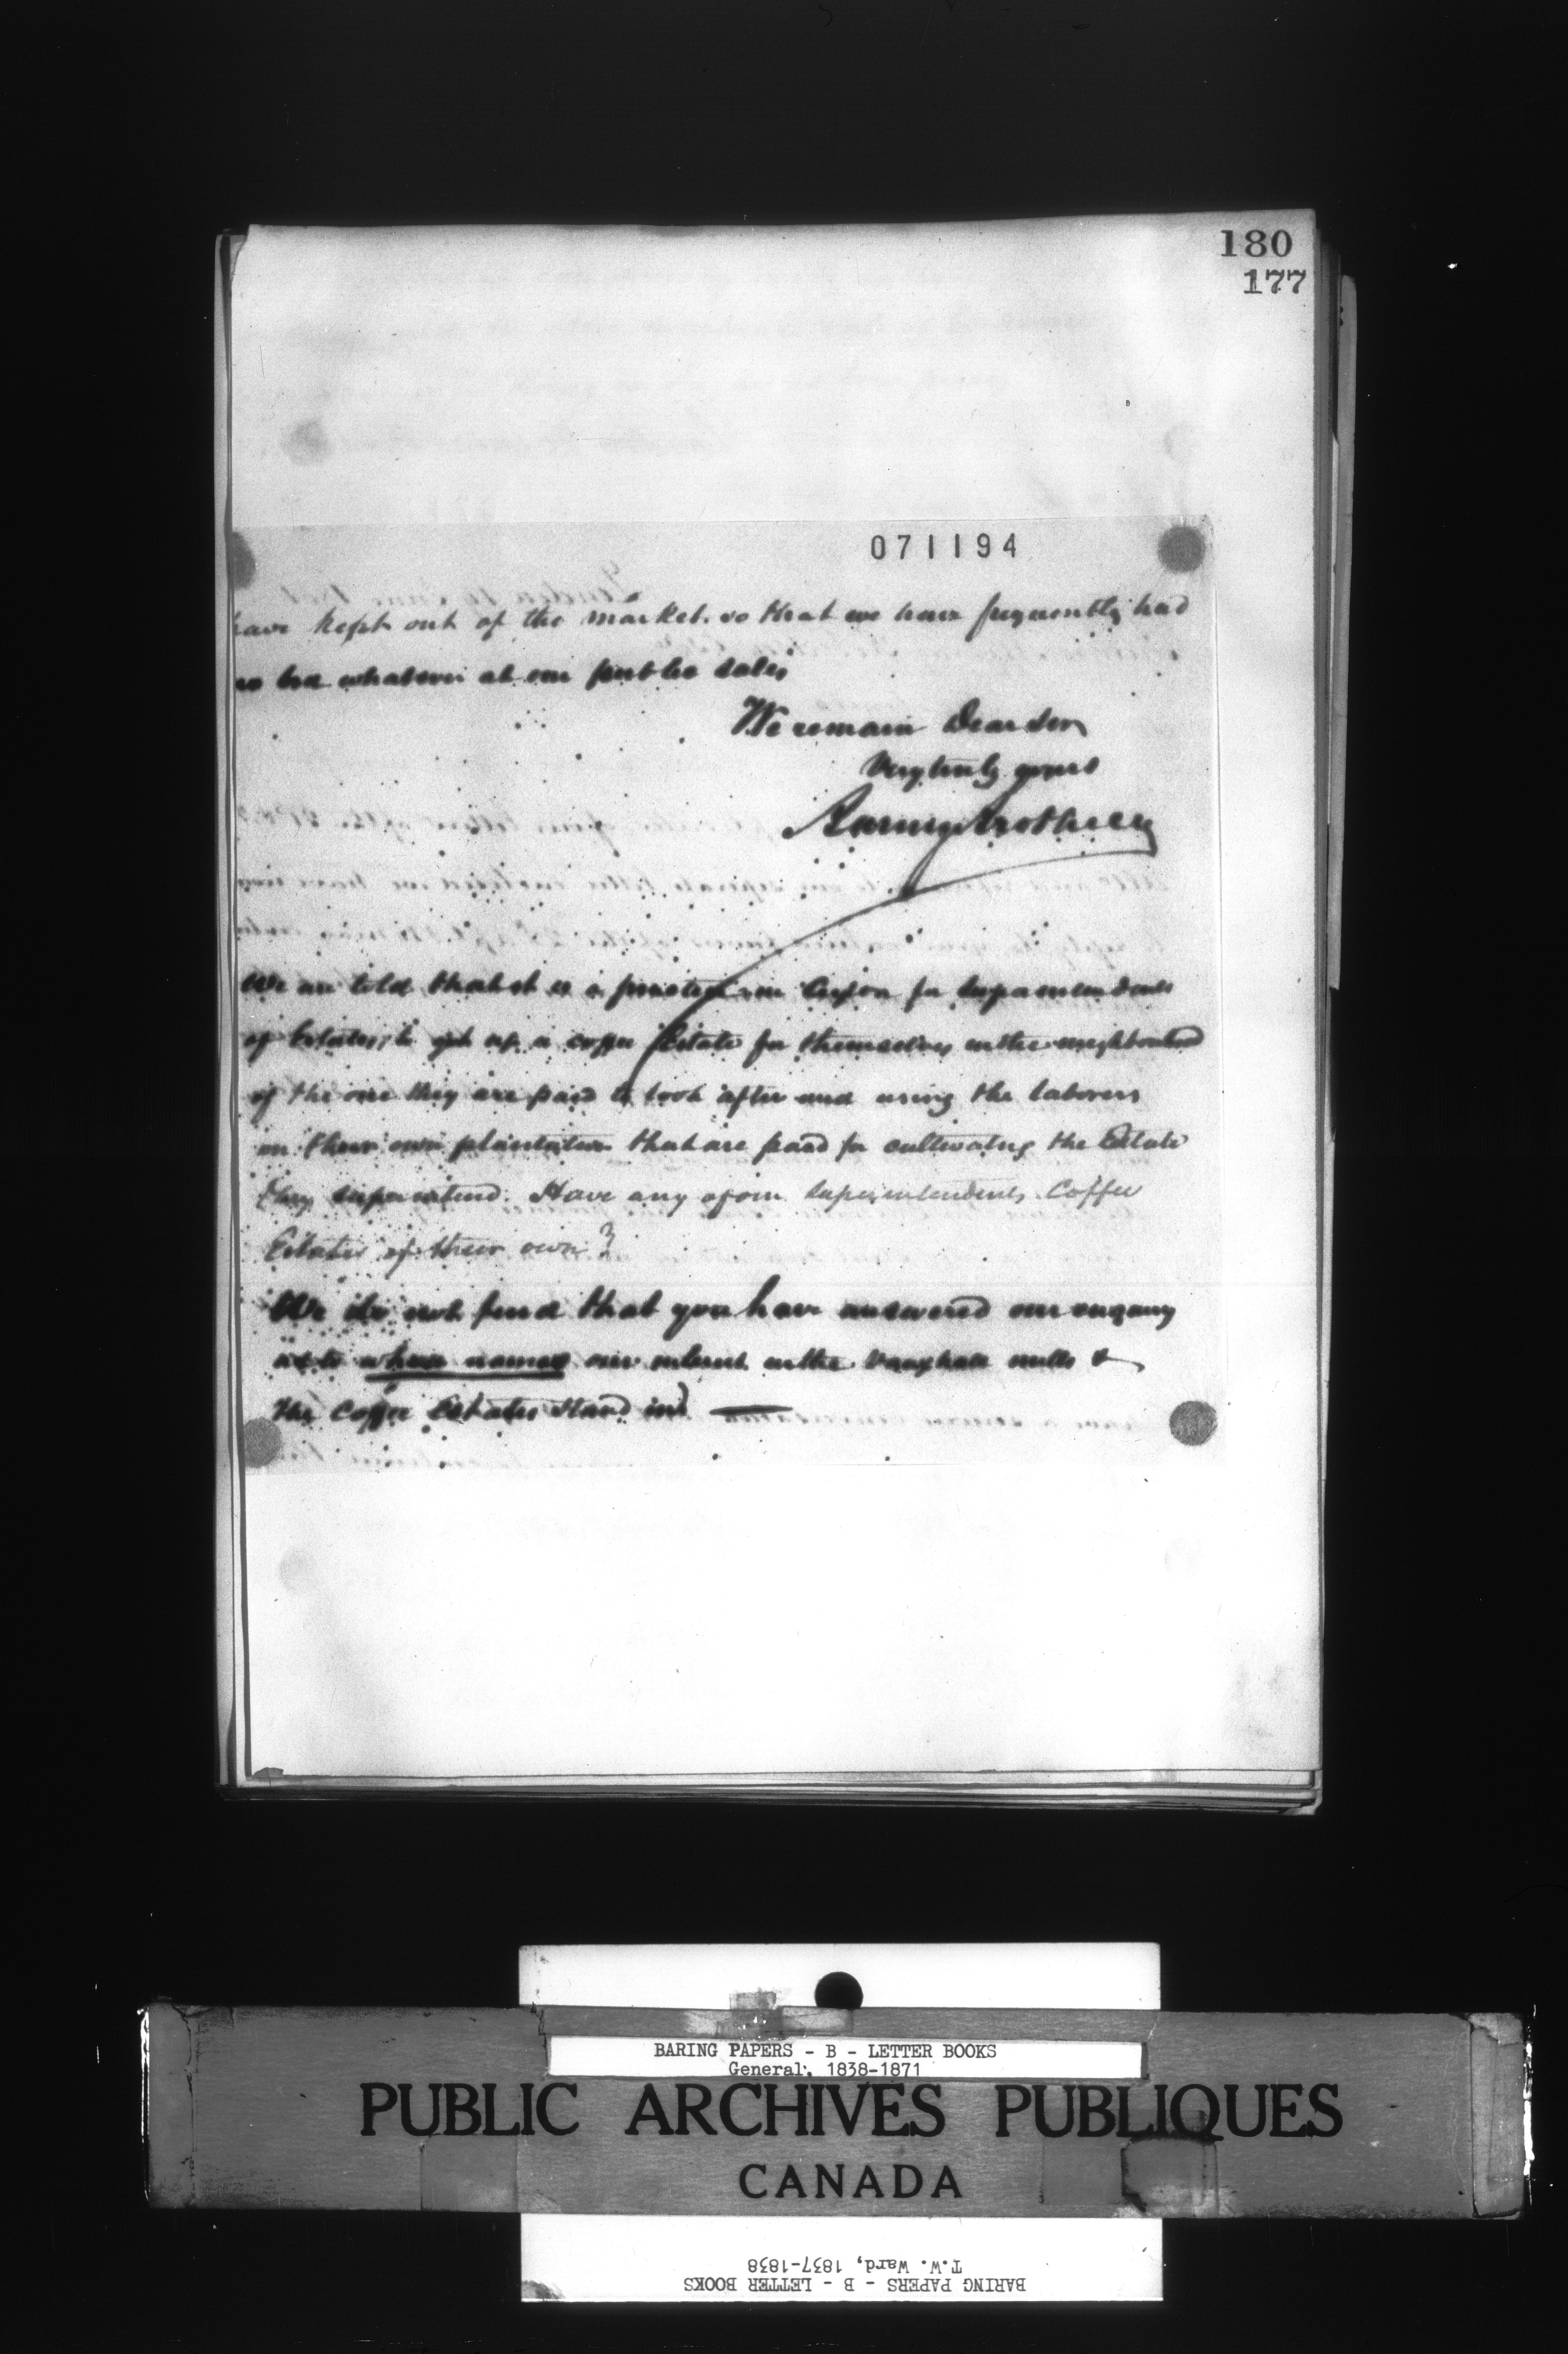 180
177
071194
have kept out of the market. so that we have frequently had
no bid whatever at our public sales
We remain Dear Sir
Very truly yours
Baring Brothers
We are told that it is a practice in Ceylon for Superintendents
of Estates, to get up a coffee Estate for themselves in the neighbourhood
of the one they are paid to look after and using the laborers
on their own plantation that are paid for cultivating the Estate
they superintend. Have any of our Superintendents Coffee
Estates of their own?
We do not find that you have answered our enquiry
as to whose names our interest in the Vauxhall mills &
the Coffee Estates stand in
BARING PAPERS - B - LETTER BOOKS
General, 1838-1871
PUBLIC ARCHIVES PUBLIQUES
CANADA
BARING PAPERS - B - LETTER BOOKS
T.W. Ward, 1837-1838